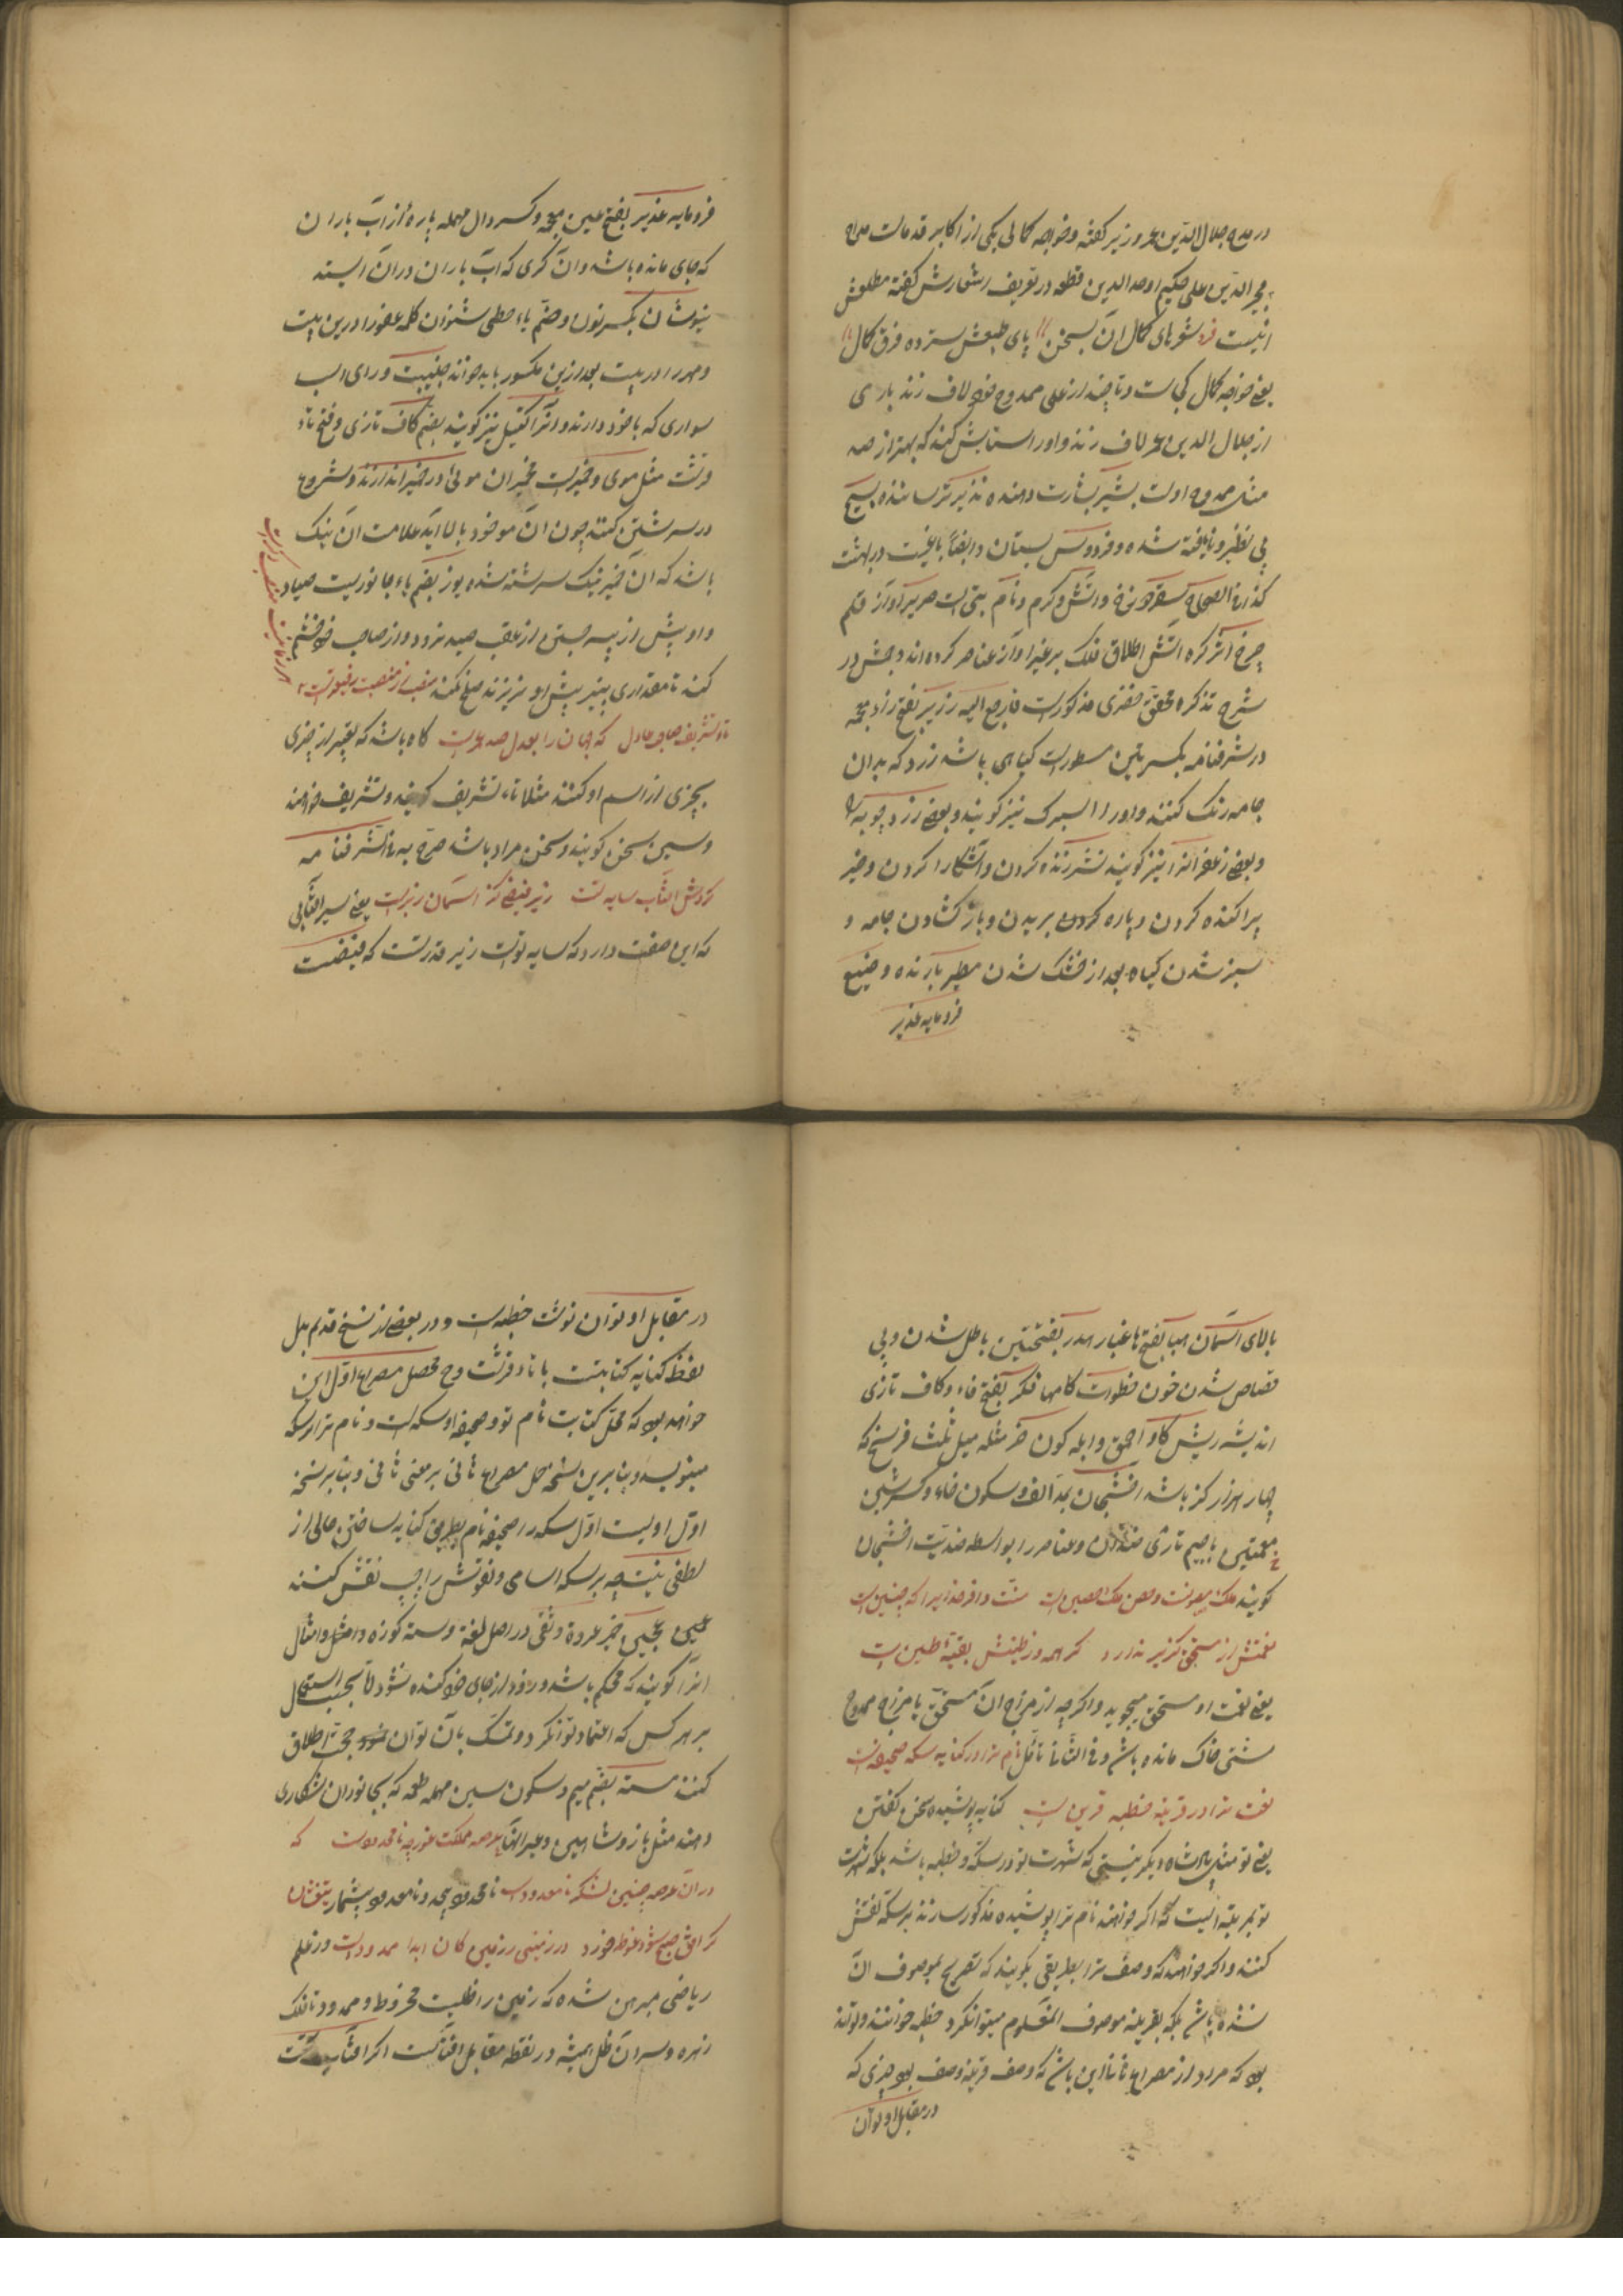 در مدح جلال الدین عمر وزیر گفته و خواجه کمالی یکی از اکابر قدما است مداح
مجیر الدین علی حکیم اوحد الدین قطعه در تعریف اشعارش گفته مطلعش
اینست فرد شعرهای کمال آن بسخن پای طبعش سپرده فرق کمال
یعنی خواجه کمال کجاست و تا چند از علی ممدوح خود لاف زند باری
از جلال الدین عمر لاف زند و او را ستایش کند که بهتر از صد
مثل ممدوح اوست بشیر بشارت دهنده نذیر ترساننده بسیج
بی نظیر و نایافته شده و فردوس بستان و ایضاً باغیست در بهشت
کذا فی الصحاح سقر دوزخ و آتش گرم و نام بتی است صریر آواز قلم
چرخ اثر کره آتش اطلاق فلک بر غیر او از عناصر کرده اند و بحثش در
شرح تذکره محقق خفری مذکورست فارجع الیه زریر بفتح زاء معجمه
در شرفنامه بکسرتین مسطورست گیاهی باشد زرد که بدان
جامه رنگ کنند و او را اسپرک نیز گویند و بعضی زردچوبه را
و بعضی زعفرانرا نیز گویند نشر زنده کردن و آشکارا کردن و خبر
پراکنده کردن و پاره کردن بریدن و باز گشادن جامه و
سبز شدن گیاه بعد از خشک شدن مطیر بارنده و ضیع
فرومایه غدیر
فرومایه غدیر بفتح غین معجمه و کسر دال مهمله پاره از آب باران
که جای مانده باشد و آن گوی که آب باران در آن ایستد
نیوشان بکسر نون و ضم یاء حطی شنوان کله غفور درین بیت
و مهر را در بیت بعد ازین مکسور باید خواند جنیبت ورای اسب
سواری که با خود دارند و آنرا کتل نیز گویند بضم کاف تازی و فتح تاء
قرشت مثل موی و خمیرست خمیران موئی در خمیر اندازند و شروع
در سرشتن کنند چون آن مو خود بالا آید علامت آن نیک
باشد که آن خمیر نیک سرشته شده یوز بضم یاء جانوریست صیاد
و او پیش از سه جستن از عقب صید نرود و از صاحب خود خشم
کند تا مقداری پنیر پیش او نریزند صلح نکند
تاء تشریف صاحب عادل که جهان را بعدل صد عمرست گاه باشد که تعبیر از چیزی
بچیزی از اسم او کنند مثلا تاء تشریف گویند و تشریف خواهند
و سین سخن گویند و سخن مراد باشد صرح به فی الشرفنامه
گردش آفتاب سایه تست زیر فیضی کز آسمان زبرست یعنی سیر آفتابی
که این صفت دارد که سایه توست زیر قدرتست که فیضت
بالای آسمان هبا بفتح ها غبار هدر بفتحتین باطل شدن و بی
قصاص شدن خون خطوات گامها فکر بفتح فاء و کاف تازی
اندیشه ریش گاو احمق و ابله کون خر مثله میل ثلث فرسخ که
چهار هزار گز باشد اخشیجان بمد الف و سکون خاء و کسر شین
معجمتین با جیم تازی ضدان و عناصر را بواسطه ضدیت اخشیجان
گویند ملک مصونست و حصن ملک حصین است منت وافر خدایرا که چنین است
نعمتش از مستحق گزیر ندارد گر همه در طینتش بقیه طین است
یعنی نعمت او مستحق میجوید و اگرچه از مزاج آن مستحق یا مزاج ممدوح
مشتی خاک مانده باشد و فی الثانی تأمل نام ترا در کنایه سکه صحیفه است
نعت ترا در قرینه خطبه قرین است کنایه پوشیده سخن گفتن
یعنی تو مثل پادشاه دیگر نیستی که شهرت تو در سکه و خطبه باشد بلکه شهرت
تو بمرتبه ایست که اگر خواهند نام ترا پوشیده مذکور سازند بر سکه نقش
کنند و اگر خواهند که وصف ترا بطریقی بگویند که تصریح بموصوف آن
نشده باشد بلکه بقرینه موصوف المعلوم میتوان کرد خطبه خوانند و تواند
بود که مراد از مصراع ثانی این باشد که وصف قرینه وصف بود چیزی که
در مقابل او توان
در مقابل او توان نوشت خطبه است و در بعضی از نسخ قدیم بدل
لفظ کنایه کتابتست با تاء قرشت و ح محصل مصراع اول این
خواهد بود که محل کتابت نام تو و صحیفه او سکه است و نام ترا بر سکه
مینویسند و بنابرین نسخه حمل مصراع ثانی بر معنی ثانی و بنا بر نسخه
اول اولیست اول سکه را صحیفه نام بطریق کنایه ساختن خالی از
لطفی نیست چه بر سکه اسامی و نقوش را چپ نقش کنند
عروة وثقی در اصل لغة دسته کوزه و امثال
آنرا گویند که محکم باشد و زود از جای خود کنده نشود اما بحسب استعمال
بر هر کس که اعتماد توان کرد و تمسک بآن توان نمود حجت اطلاق
کنند مسته بضم میم و سکون سین مهمله طعمه که بجانوران شکاری
دهند مثل باز و شاهین و غیر آنها عرصه مملکت غور چه نامحدود است که
در آن عرصه چنین لشکر نامعدود است نامحدود بیحد و نامعدود بیشمار
گر افق صبح شود غوطه خورد در زمینی زمین کان ابدا ممدود است در علم
ریاضی مبرهن شده که زمین را ظلیست مخروط و ممدود تا فلک
زهره و سر آن ظل همیشه در نقطه مقابل آفتابست اگر آفتاب تحت